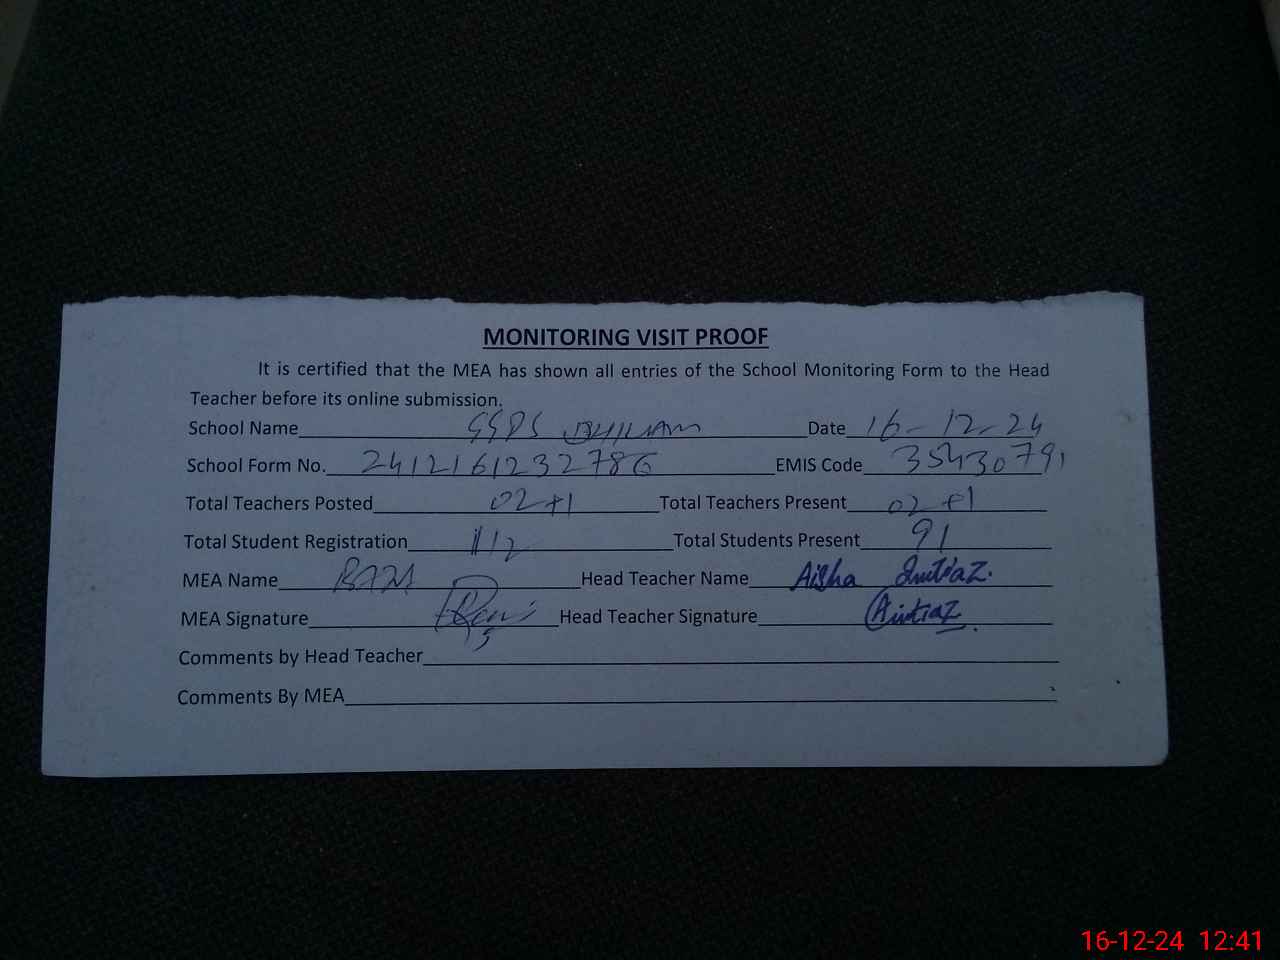 MONITORING VISIT PROOF
It is certified that the MEA has shown all entries of the School Monitoring Form to the Head
Teacher before its online submission.
School Name Date 16-12-24
School Form No. 2412161232786 EMIS Code 35430791
Total Teachers Posted 02+1 Total Teachers Present 02+1
Total Student Registration 112 Total Students Present 91
MEA Name Head Teacher Name Aisha Imtiaz.
MEA Signature Head Teacher Signature Aimtiaz
Comments by Head Teacher
Comments By MEA
16-12-24 12:41